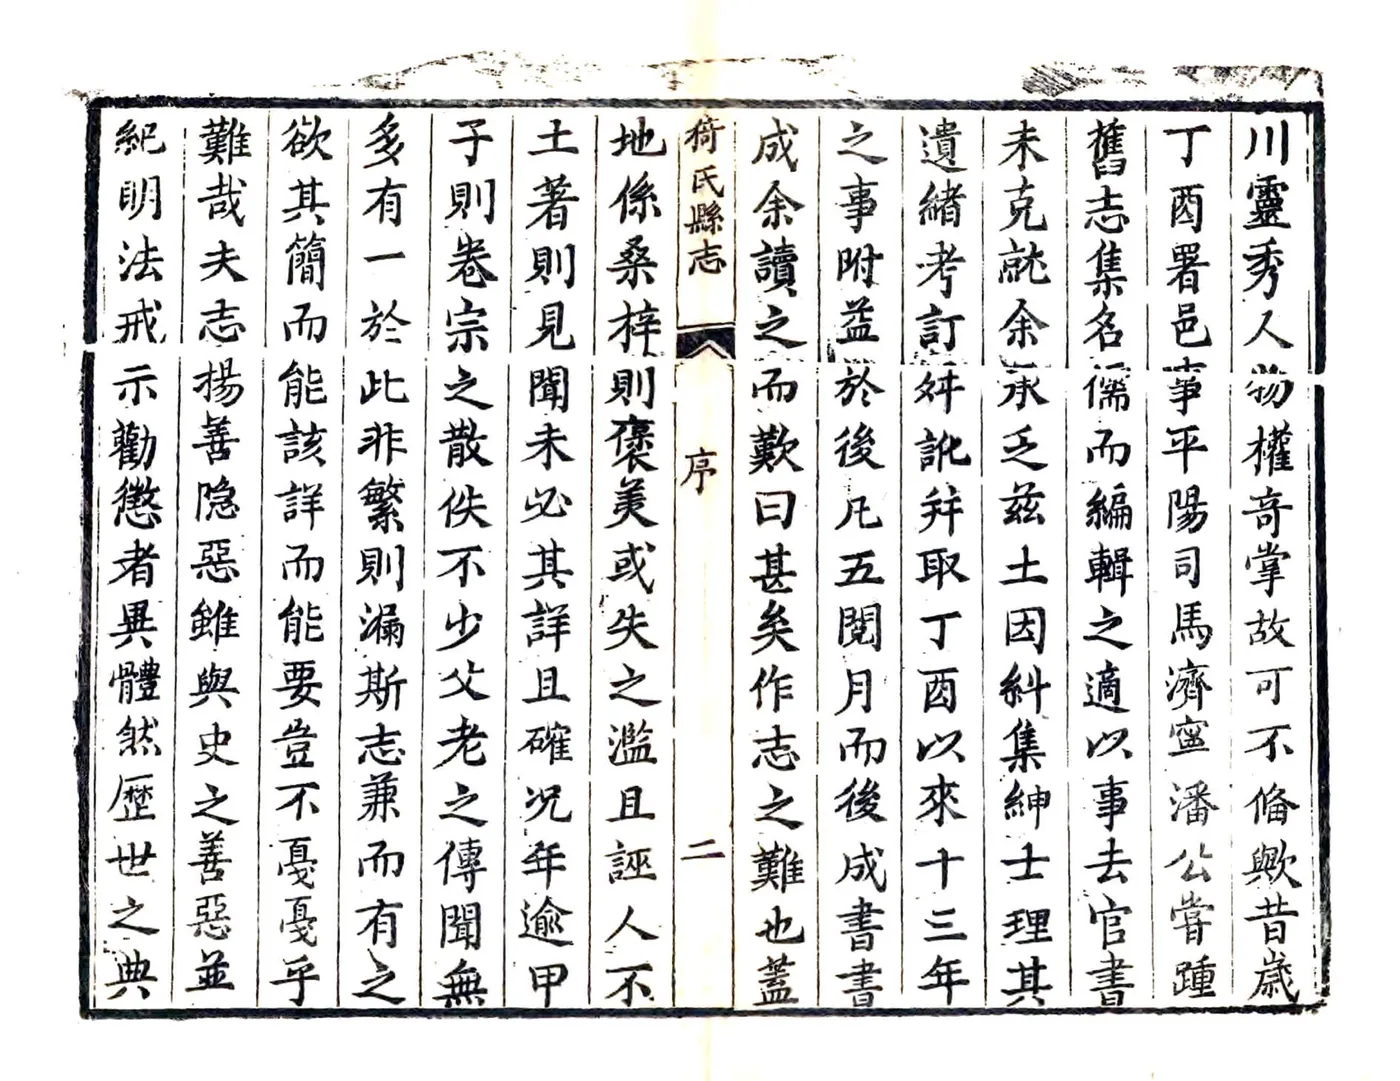 川靈秀人物權竒掌故可不脩歟昔歲
丁酉署邑事平陽司馬濟寧潘公甞踵
舊志集名儒而編輯之適以事去官書
未克就余承乏兹土因糾集紳士理其
遺緒考訂舛訛并取丁酉以來十三年
之事附益於後凡五閱月而後成書書
成余讀之而歎曰甚矣作志之難也蓋
猗氏縣志 序 二
地係桑梓則褒美或失之濫且誣人不
土著則見聞未必其詳且確况年逾甲
子則卷宗之散佚不少父老之傳聞無
多有一於此非繁則漏斯志兼而有之
欲其簡而能該詳而能要豈不戞戞乎
難哉夫志揚善隐惡雖與史之善惡並
紀明法戒示勸懲者異體然歷世之典